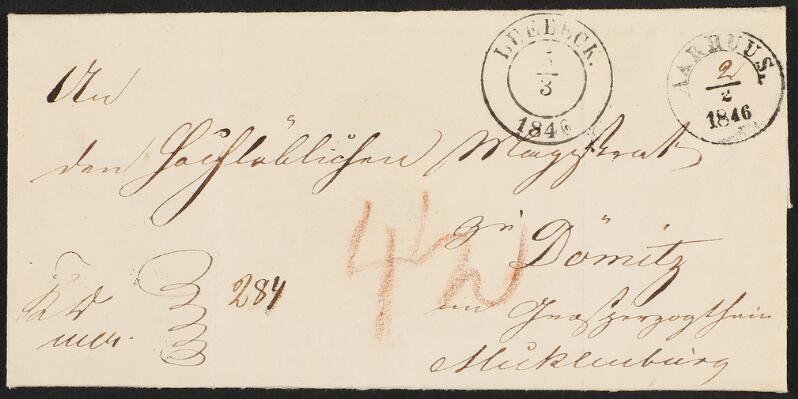 LUEBECK.
5
3
1846
AARHUUS.
2
2
1846
An
den Hochlöblichen Magistrat
zu Dömitz
im Großherzogthum
Mecklenburg
284
4½